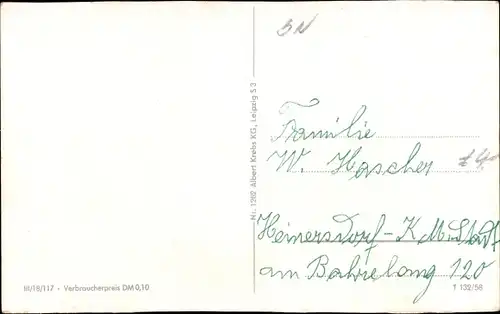 Familie
W. Hascher
Heinersdorf-K.M.Stadt
am Bahrelang 120
Nr. 1282 Albert Krebs KG, Leipzig S 3
III/18/117 · Verbraucherpreis DM 0,10
T 132/58